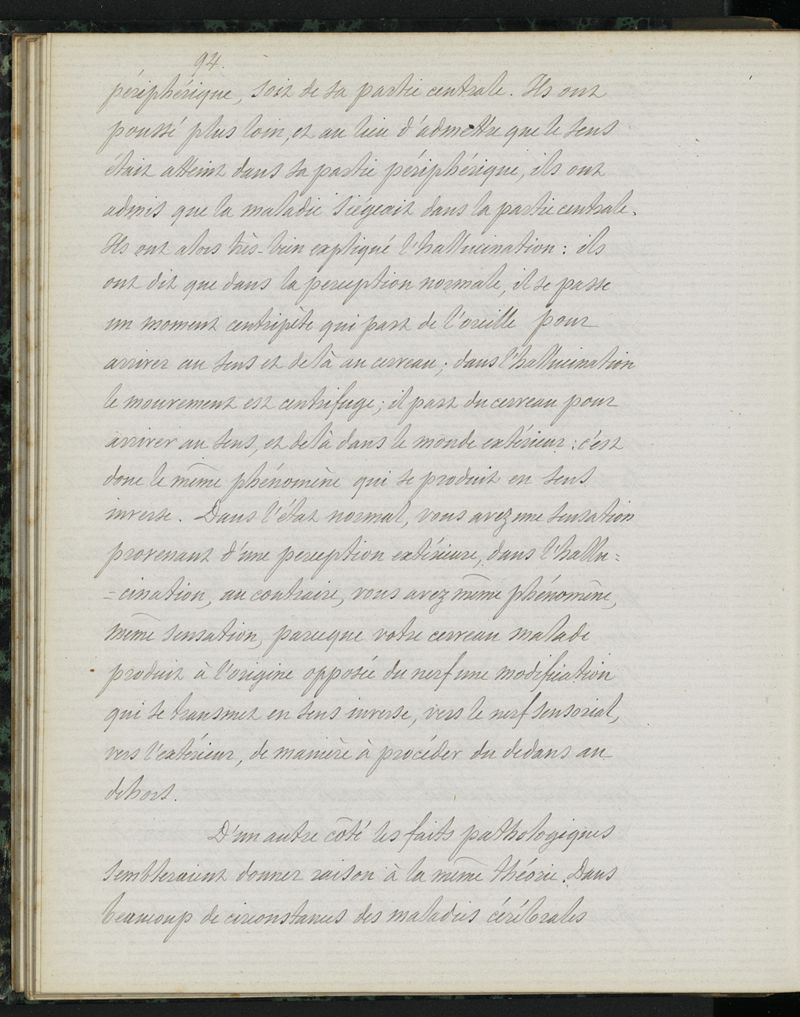 94.
périphérique, soit de sa partie centrale. Ils ont
poussé plus loin, et au lieu d'admettre que le sens
était atteint dans sa partie périphérique, ils ont
admis que la maladie siégeait dans la partie centrale.
Ils ont alors très-bien expliqué l'hallucination : ils
ont dit que dans la perception normale, il se passe
un moment centripète qui part de l'oreille pour
arriver au sens et de là au cerveau ; dans l'hallucination
le mouvement est centrifuge ; il part du cerveau pour
arriver au sens, et de là dans le monde extérieur : c'est
donc le même phénomène qui se produit en sens
inverse. Dans l'état normal, vous avez une sensation
provenant d'une perception extérieure, dans l'hallu=
=cination, au contraire, vous avez même phénomène,
même sensation, parceque votre cerveau malade
produit à l'origine opposée du nerf une modification
qui se transmet en sens inverse, vers le nerf sensorial,
vers l'extérieur, de manière à procéder du dedans au
dehors.
D'un autre côté les faits pathologiques
sembleraient donner raison à la même théorie. Dans
beaucoup de circonstances des maladies cérébrales